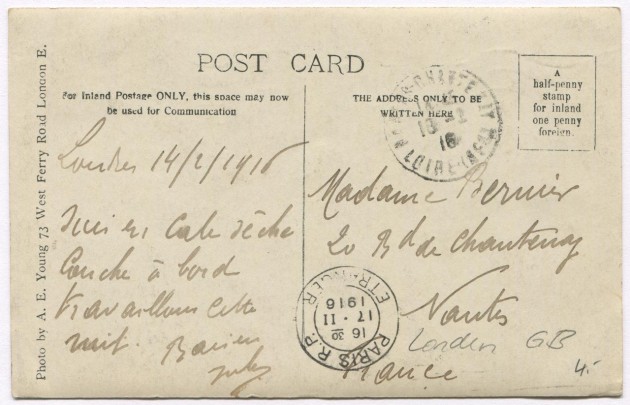 POST CARD
For Inland Postage ONLY, this space may now
be used for Communication
THE ADDRESS ONLY TO BE
WRITTEN HERE
A
half-penny
stamp
for inland
one penny
foreign.
Photo by A. E. Young 73 West Ferry Road London E.
Londres 14/2/1916
Suis en Cale sèche
Couche à bord
travaillons cette
nuit. Baisers
Jules
Madame Bernier
20 Bd de Chantenay
Nantes
London GB
France
4.-
PARIS R.P.
16 30
17 - II
1916
ETRANGER
16